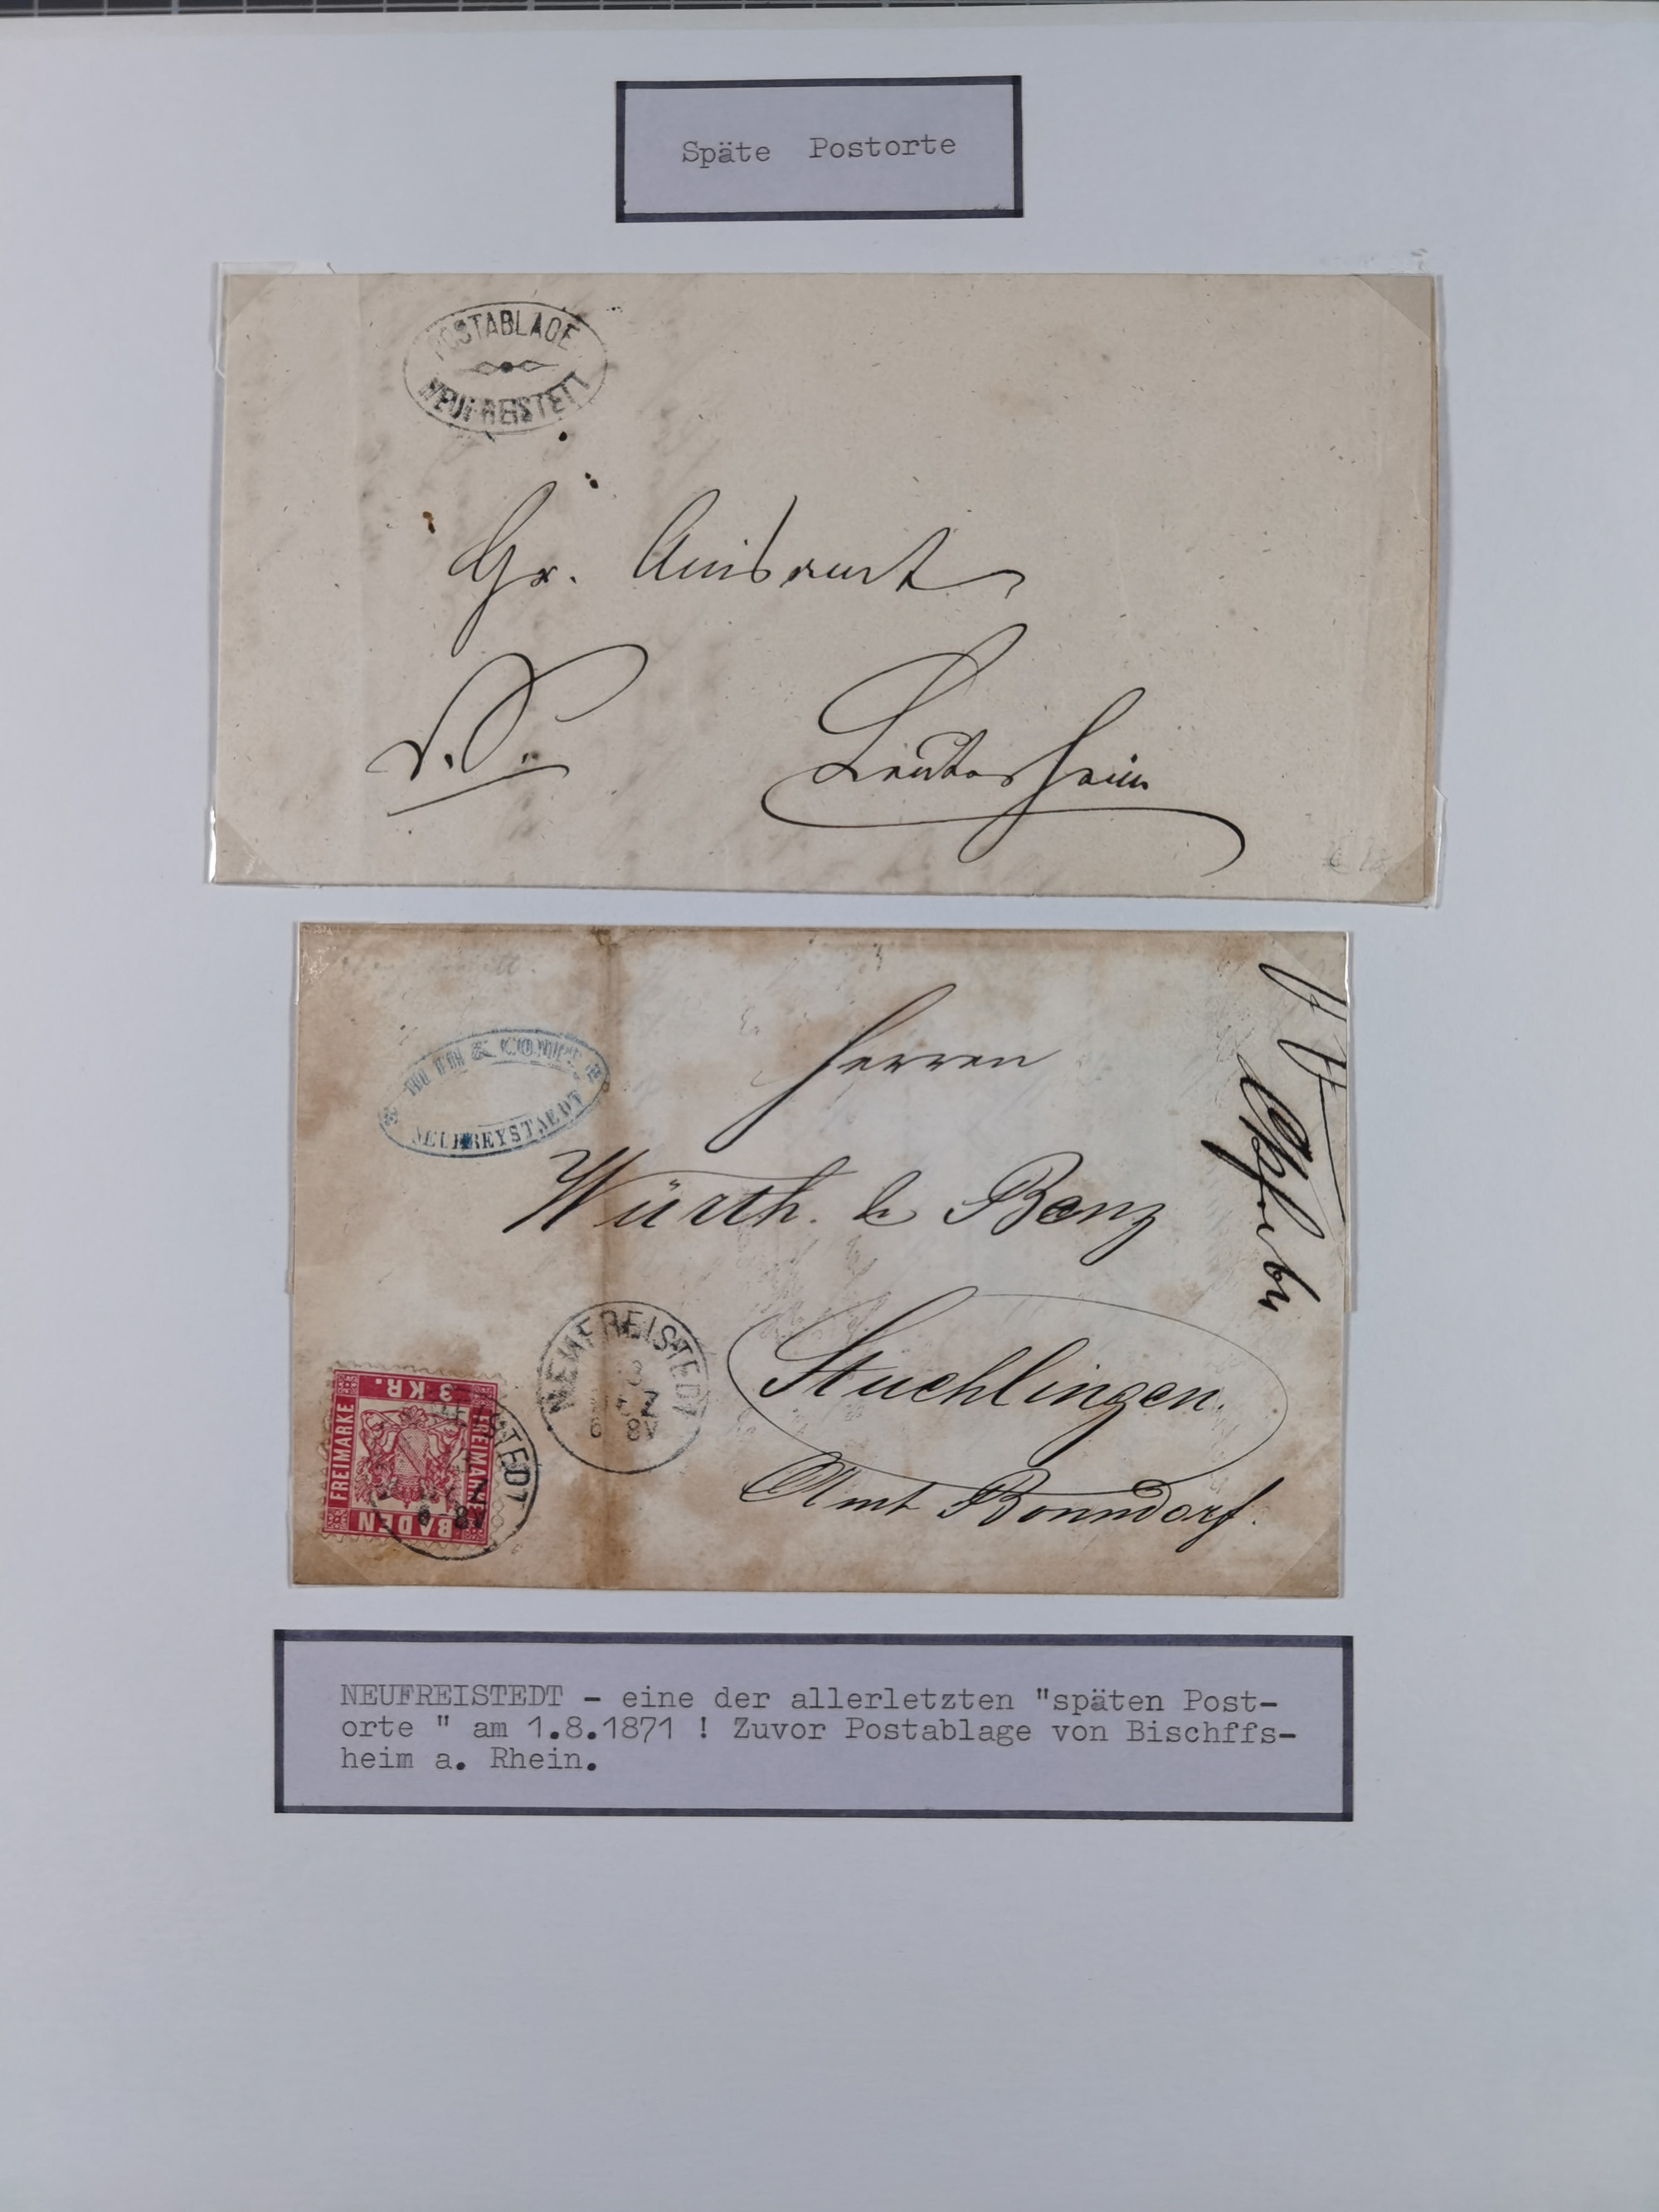 Späte Postorte
POSTABLAGE
NEUFREISTETT
Gr. Amtsamt
& COMP.
NEUFREYSTAEDT
Herren
Würth. & Benz
Stuehlingen.
Amt Bonndorf.
NEUFREISTEDT
8V
3 KR.
FREIMARKE
FREIMARKE
BADEN
STEDT
8V
NEUFREISTEDT - eine der allerletzten "späten Post-
orte " am 1.8.1871 ! Zuvor Postablage von Bischffs-
heim a. Rhein.